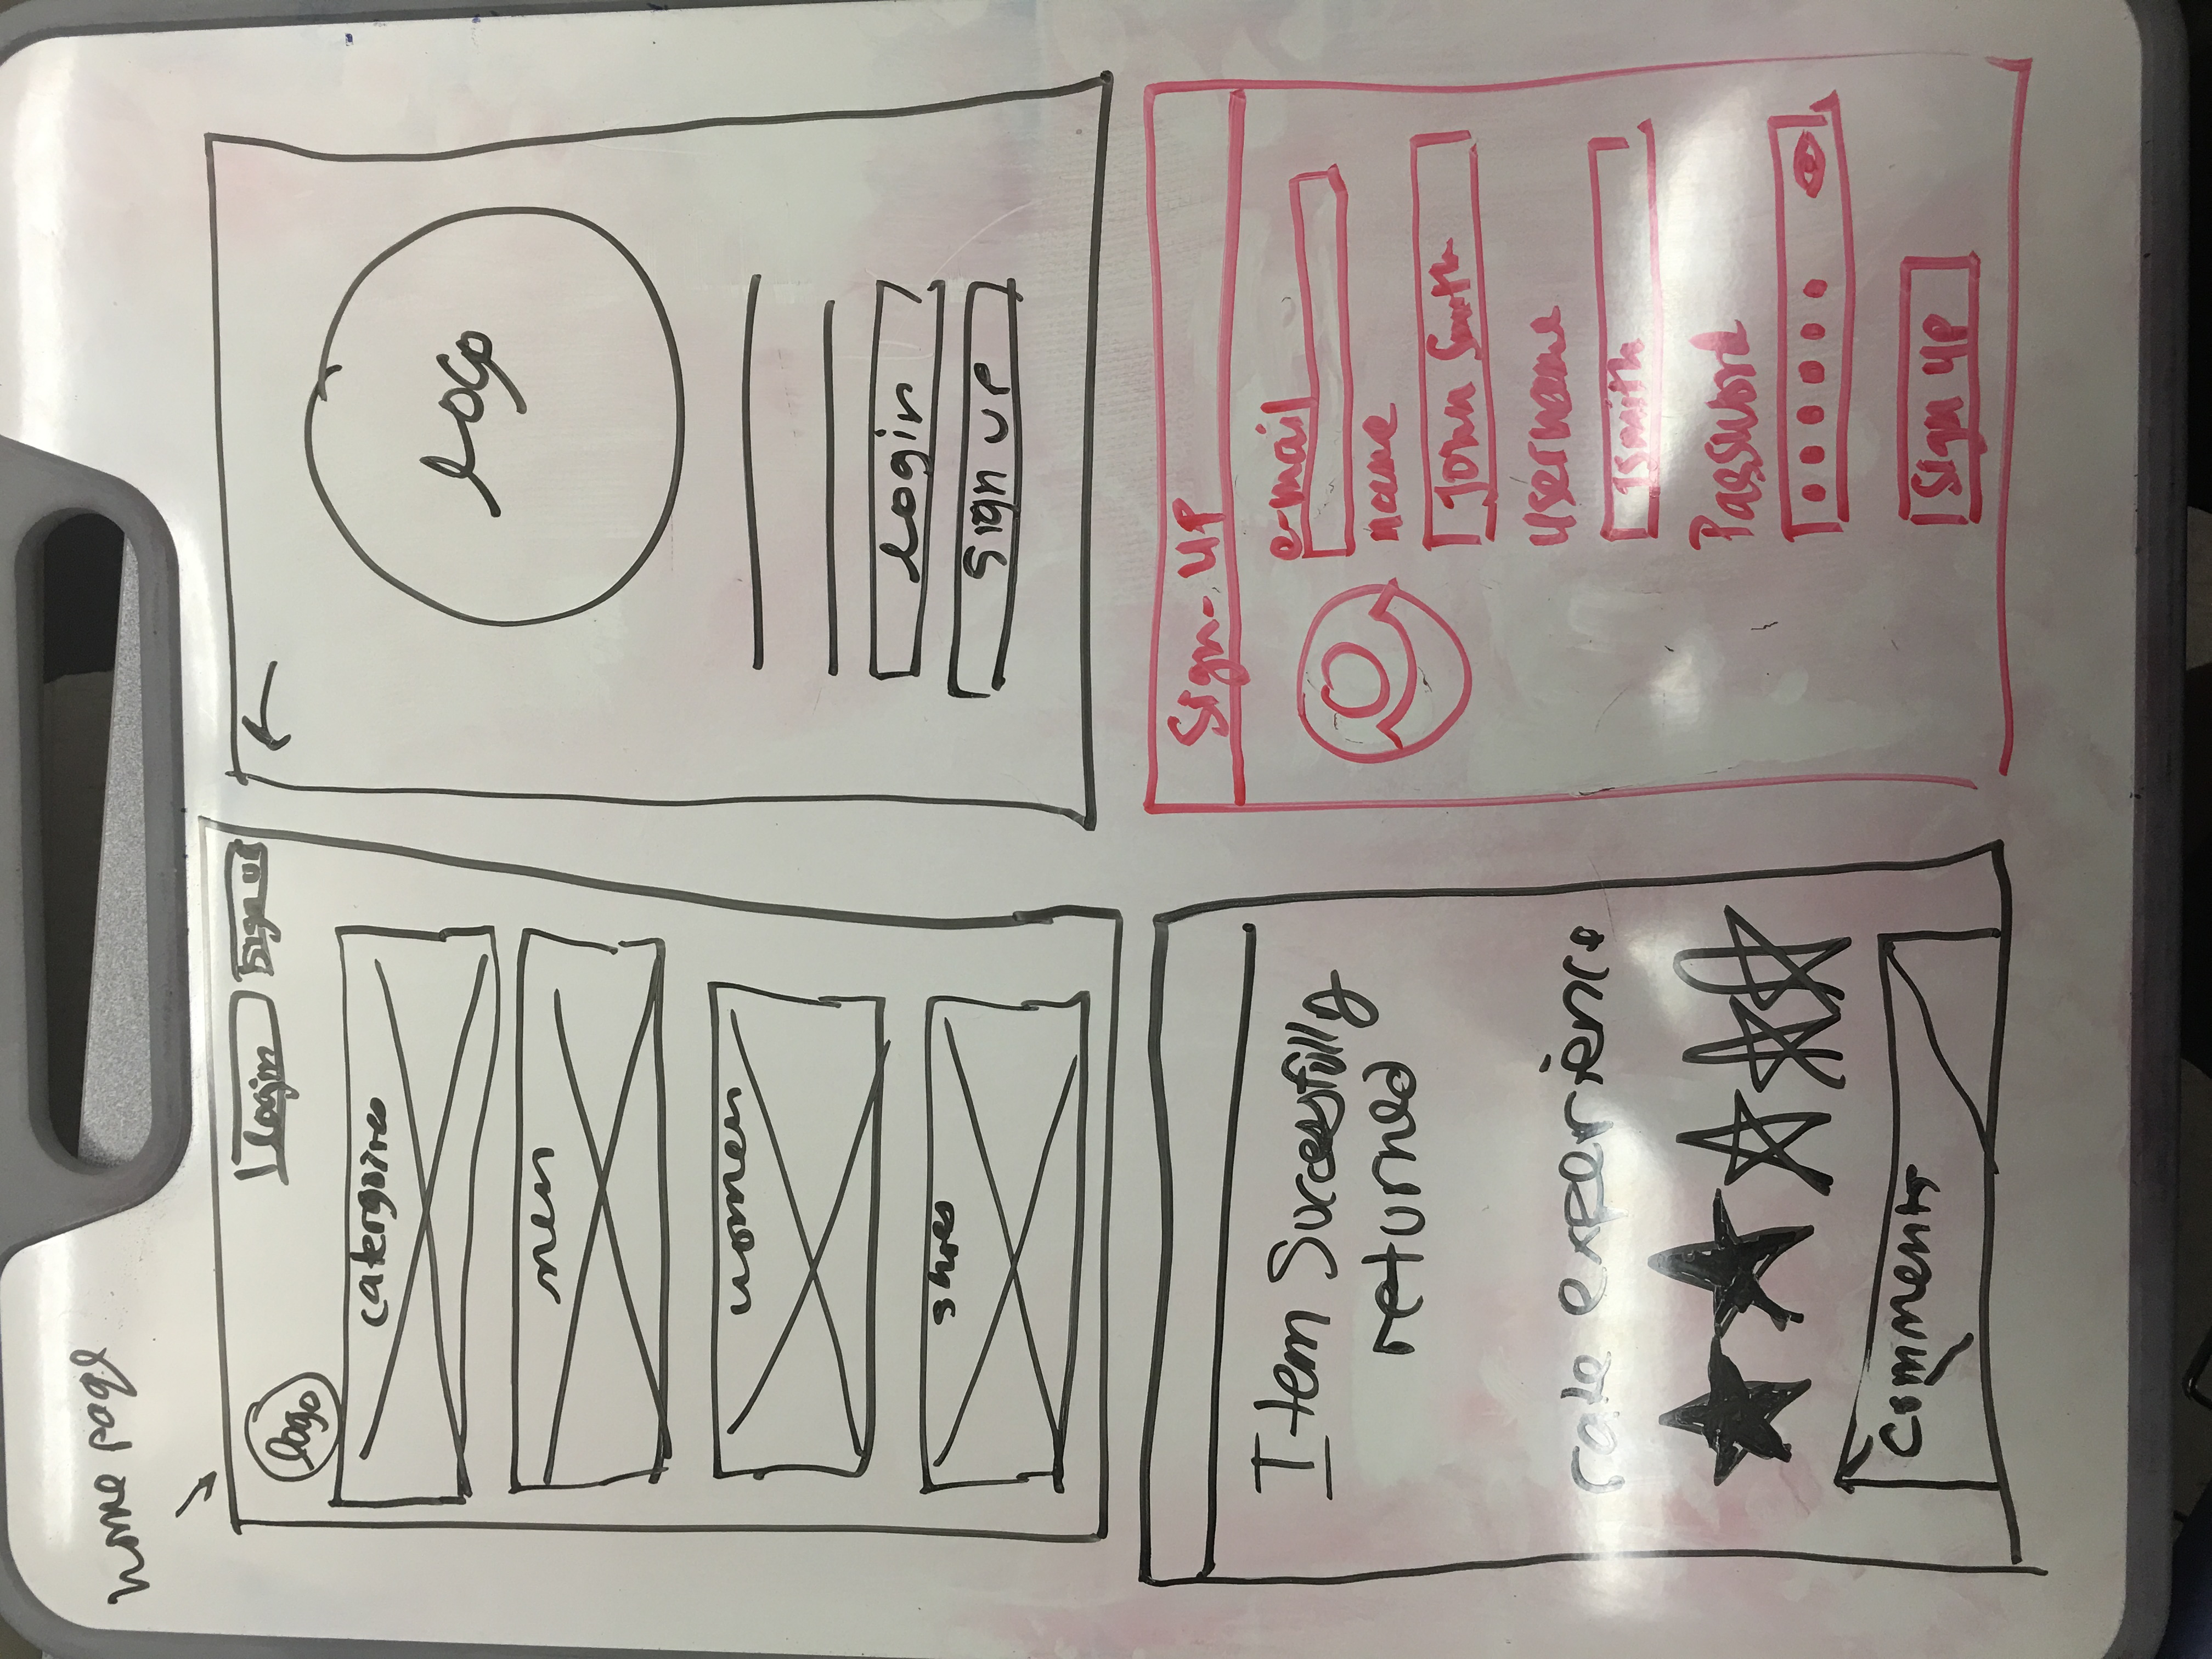 home page
logo
login
sign up
catergoires
men
women
shoes
logo
login
sign up
Item Successfully
returned
rate experience
comments
Sign-UP
e-mail
name
John Smith
username
Jsmith
Password
sign up